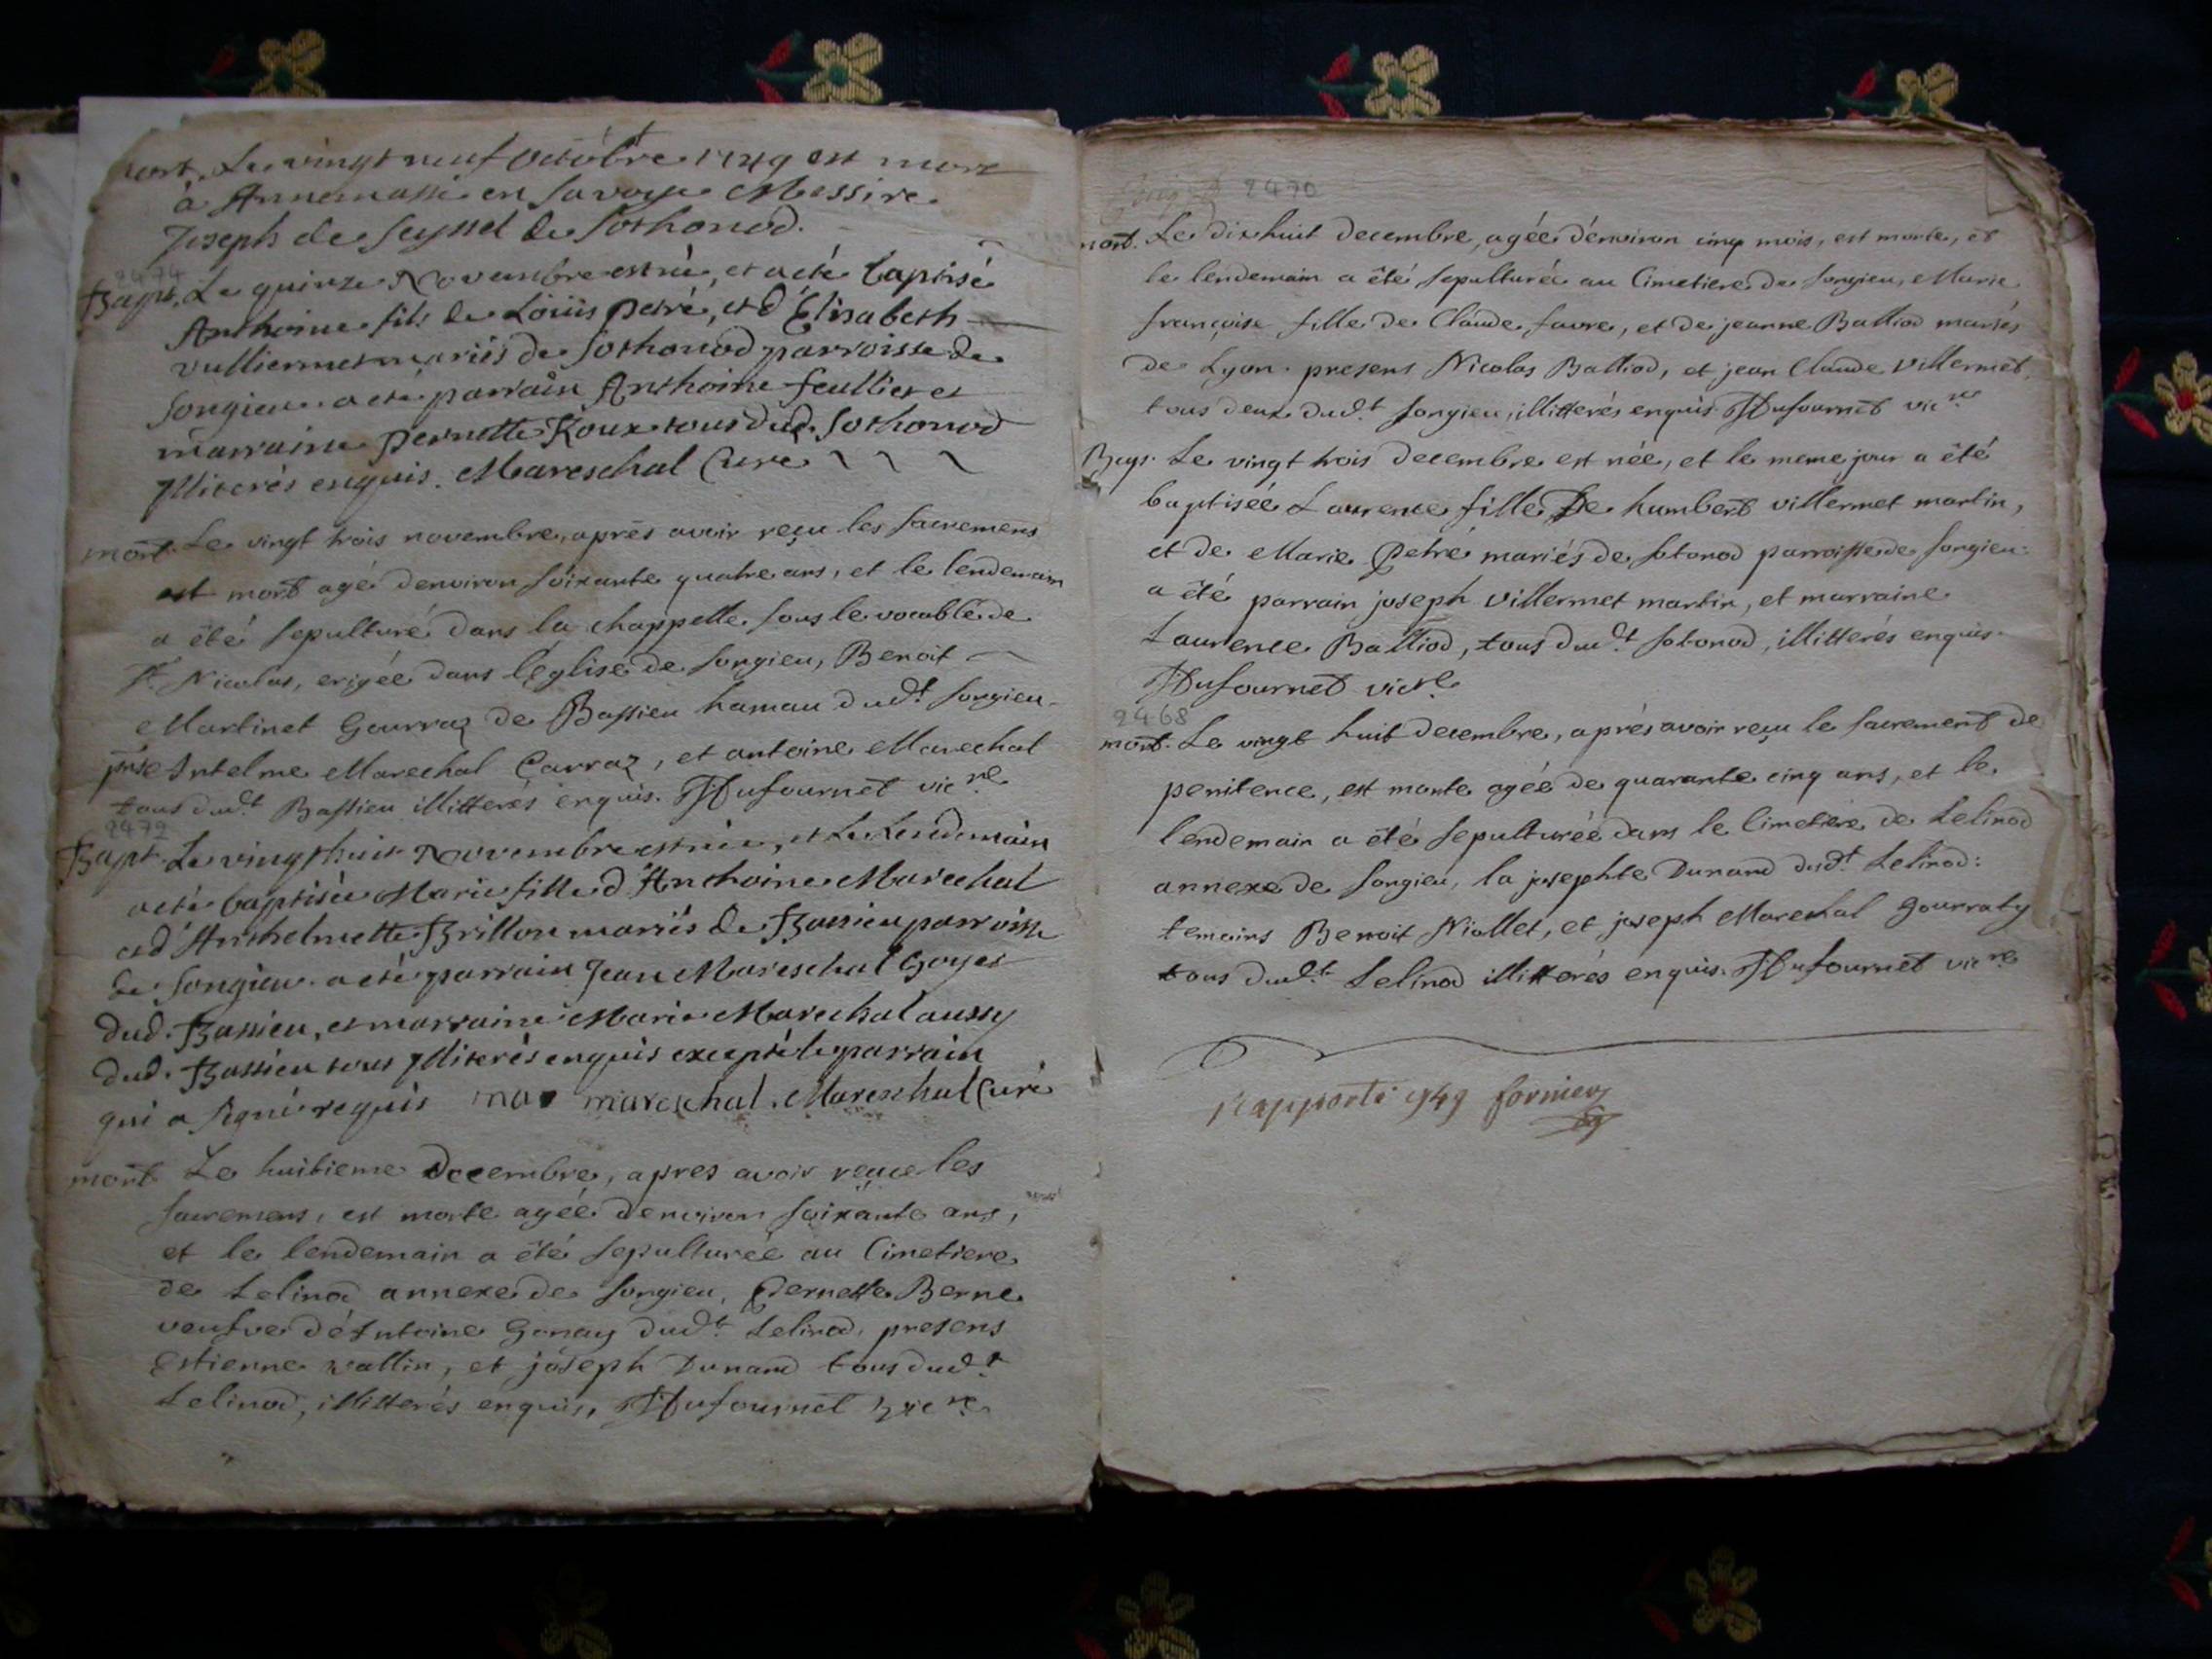 mort. Le vingt neuf octobre 1749 est mort
à Annemasse en Savoye Messire
Joseph de Seyssel de Sothonod.
2474
Bapt. Le quinze Novembre est né, et a eté baptisé
Anthoine fils de Loüis petré, et d'Elisabeth
vulliermet mariés de Sothonod parroisse de
Songieu. a eté parrain Anthoine feulliet et
marraine pernette Roux tous dud. Sothonod
Illiterés enquis. Mareschal Curé
mort. Le vingt trois novembre, aprés avoir reçu les sacremens
est mort agé d'environ soixante quatre ans, et le lendemain
a êté sepulturé dans la chappelle sous le vocable de
St. Nicolas, erigée dans l'église de Songieu, Benoit
Martinet Gourraz de Bassieu hamau dudt. Songieu.
Antelme Marechal Carraz, et antoine Marechal
tous dudt. Bassieu illitterés enquis. Dufournet vicre
2472
Bapt. Le vingt huit Novembre est née, et Le Lendemain
a eté baptisée Marie fille d'Anthoine Marechal
et d'Anthelmette Brillon mariés de Bassieu parroisse
de Songieu. a eté parrain Jean Mareschal Goyet
dud. Bassieu, et marraine Marie Marechal aussy
dud. Bassieu tous Illiterés enquis excepté le parrain
qui a signé requis mareschal. Mareschal Curé
mort Le huitieme Decembre, apres avoir reçue les
sacremens, est morte agée d'environ soixante ans,
et le lendemain a êté sepulturée au Cimetiere
de Lelinod annexe de Songieu, Pernette Berne
veufve d'Antoine Gonay dudt. Lelinod, presens
Estienne vallin, et joseph Dunand tous dudt.
Lelinod, illitterés enquis, Dufournet vicre
2470
mort. Le dix huit decembre, agée d'environ cinq mois, est morte, et
le lendemain a êté sepulturée au Cimetiere de Songieu, Marie
françoise fille de Claude favre, et de jeanne Balliod mariés
de Lyon. presens Nicolas Balliod, et jean Claude Villermet,
tous deux dudt. Songieu, illitterés enquis. Dufournet vicre
Bap. Le vingt trois decembre est née, et le meme jour a êté
baptisée Laurence fille De humbert villermet martin,
et de Marie Petré mariés de Sotonod parroisse de Songieu.
a été parrain joseph villermet martin, et marraine
Laurence Balliod, tous dudt. Sotonod, illitterés enquis.
Dufournet vicre
2468
mort. Le vingt huit decembre, aprés avoir reçu le sacrement de
penitence, est morte agée de quarante cinq ans, et le
lendemain a êté sepulturée dans le Cimetiere de Lelinod
annexe de Songieu, la josephte Dunand dudt. Lelinod:
temoins Benoit Niollet, et joseph Marechal
tous dudt. Lelinod illitterés enquis. Dufournet vicre
Rapporté 1749 fornier